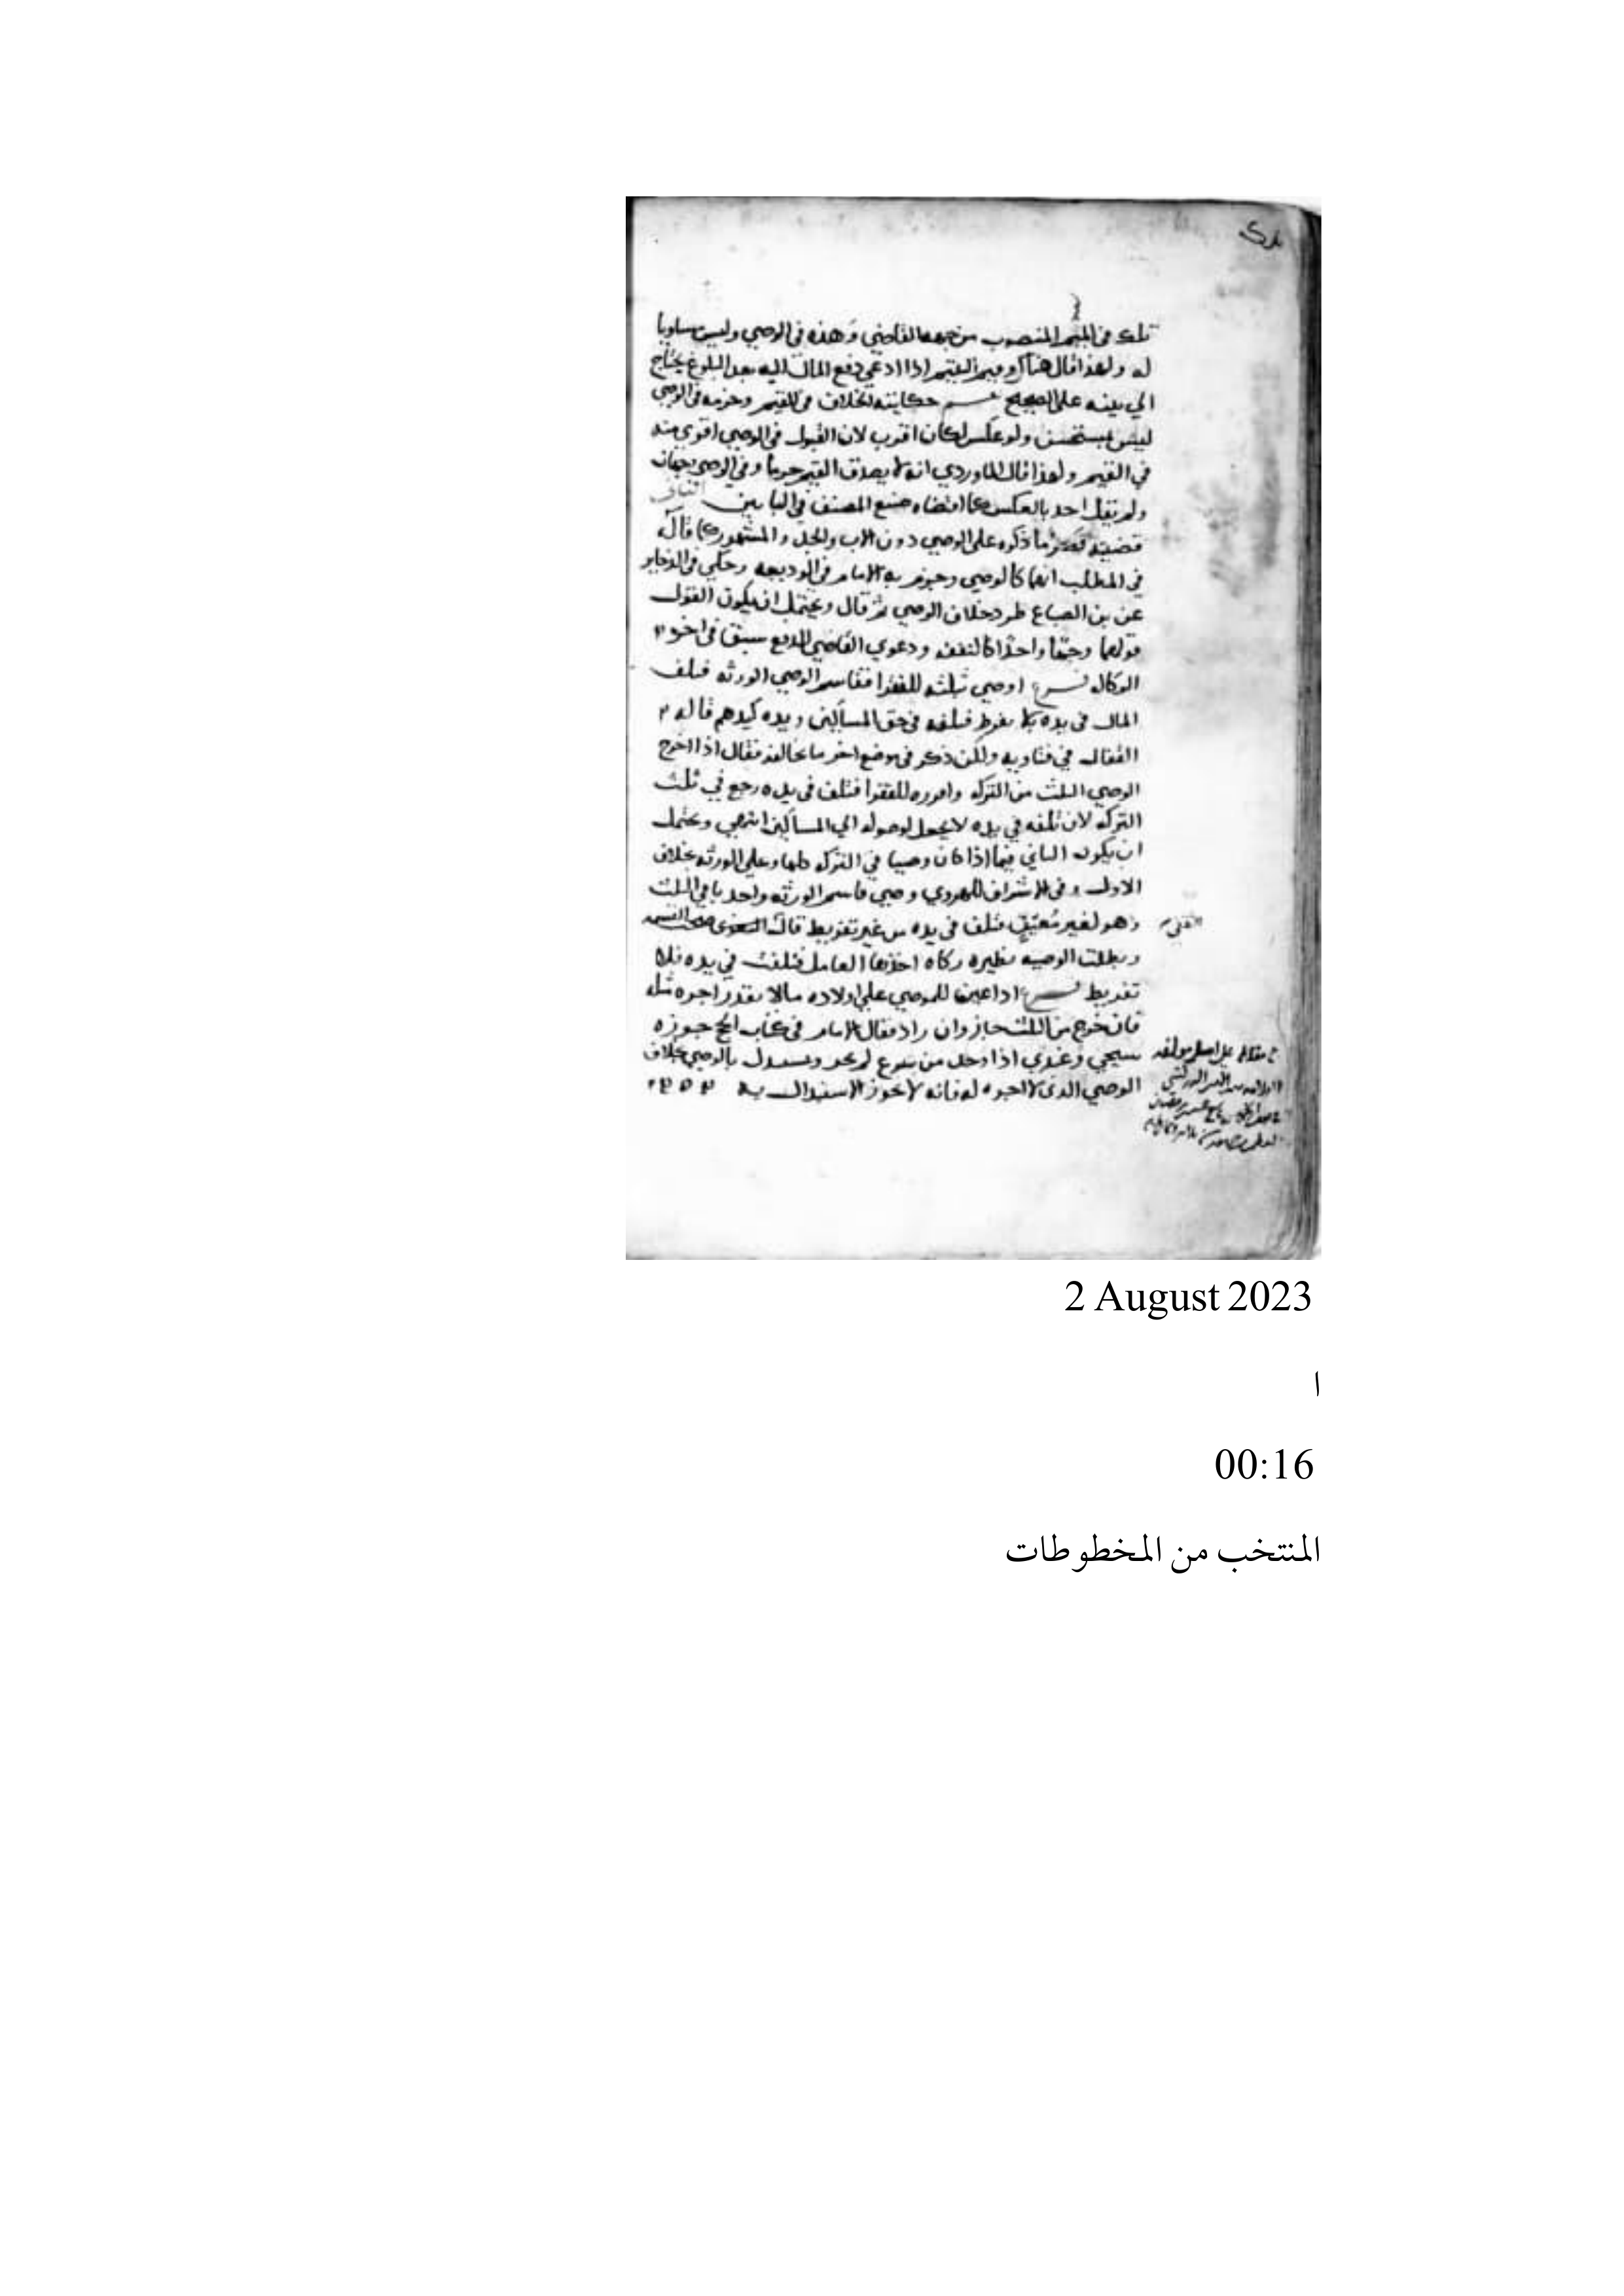 تلك في القيم المنصوب من جهة القاضي وهذه في الوصي وليس مساويا
له ولهذا قال هناك وقيم اليتيم اذا ادعي دفع المال اليه بعد البلوغ يحتاج
الي بينه على الصحيح نعم حكايته الخلاف في القيم وجزمه في الوصي
ليس بمستحسن ولو عكس لكان اقرب لان القبول في الوصي اقوي منه
في القيم ولهذا قال الماوردي انه لا يصدق القيم جزما وفي الوصي وجهان
ولم يقل احد بالعكس كما اقتضاه صنيع المصنف في البابين الثاني
قضيته قصر ما ذكره على الوصي دون الاب والجد والمشهور كما قال
في المطلب انهما كالوصي وجزم به الامام في الوديعه وحكي في الذخاير
عن بن الصباغ طرد خلاف الوصي ثم قال ويحتمل ان يكون القول
قولهما وجها واحدا كالنفقه ودعوي القاضي الدفع سبق في اخر
الوكاله فرع اوصي بثلثه للفقرا فقاسم الوصي الورثه فتلف
المال في يده بلا تفريط فتلفه في حق المساكين ويده كيدهم قاله
القفال في فتاويه ولكن ذكر في موضع اخر ما يخالفه فقال اذا اخرج
الوصي الثلث من التركه وافرده للفقرا فتلف في يده رجع في ثلث
التركه لان تلفه في يده لا يجعل لوصوله الي المساكين انتهي ويحتمل
ان يكون الثاني فيما اذا كان وصيا في التركه كلها وعلي الورثه بخلاف
الاول وفي الاشراف للهروي وصي قاسم الورثه واخذ باقي الثلث
وهو لغير معين فتلف في يده من غير تفريط قال
وبطلت الوصيه نظيره زكاه اخذها العامل فتلفت في يده بلا
تفريط فرع اذا عين للوصي علي اولاده مالا بقدر اجره مثله
فان خرج من الثلث جاز وان زاد فقال الامام في كتاب الحج جوزه
شيخي وعندي اذا وجد من يتبرع لم يجز ويستبدل بالوصي بخلاف
الوصي الذي لا اجره له فانه لا يجوز الاستبدال به
2 August 2023
ا
00:16
المنتخب من المخطوطات